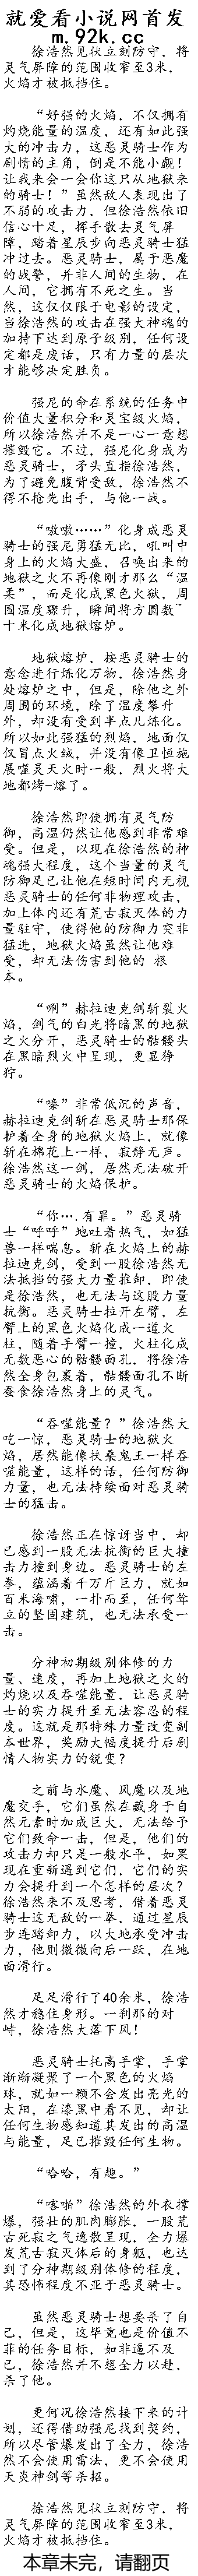 就爱看小说网首发
m.92k.cc
徐浩然见状立刻防守，将
灵气屏障的范围收窄至3米，
火焰才被抵挡住。
“好强的火焰，不仅拥有
灼烧能量的温度，还有如此强
大的冲击力，这恶灵骑士作为
剧情的主角，倒是不能小觑！
让我来会一会你这只从地狱来
的骑士！”虽然敌人表现出了
不弱的攻击力，但徐浩然依旧
信心十足，挥手散去灵气屏
障，踏着星辰步向恶灵骑士猛
冲过去。恶灵骑士，属于恶魔
的战警，并非人间的生物，在
人间，它拥有不死之生。当
然，这仅仅限于电影的设定，
当徐浩然的攻击在强大神魂的
加持下达到原子级别，任何设
定都是废话，只有力量的层次
才能够决定胜负。
强尼的命在系统的任务中
价值大量积分和灵宝级火焰，
所以徐浩然并不是一心一意想
摧毁它。不过，强尼化身成为
恶灵骑士，矛头直指徐浩然，
为了避免腹背受敌，徐浩然不
得不抢先出手，与他一战。
“嗷嗷……”化身成恶灵
骑士的强尼勇猛无比，吼叫中
身上的火焰大盛，召唤出来的
地狱之火不再像刚才那么“温
柔”，而是化成黑色火狱，周
围温度骤升，瞬间将方圆数~
十米化成地狱熔炉。
地狱熔炉，按恶灵骑士的
意念进行炼化万物，徐浩然身
处熔炉之中，但是，除他之外
周围的环境，除了温度攀升
外，却没有受到半点儿炼化。
所以如此强猛的烈焰，地面仅
仅冒点火绒，并没有像卫恒施
展噬灵天火时一般，烈火将大
地都烤-熔了。
徐浩然即使拥有灵气防
御，高温仍然让他感到非常难
受。但是，以现在徐浩然的神
魂强大程度，这个当量的灵气
防御足已让他在短时间内无视
恶灵骑士的任何非物理攻击，
加上体内还有荒古寂灭体的力
量驻守，使得他的防御力突非
猛进，地狱火焰虽然让他难
受，却无法伤害到他的 根
本。
“唰”赫拉迪克剑斩裂火
焰，剑气的白光将暗黑的地狱
之火分开，恶灵骑士的骷髅头
在黑暗烈火中呈现，更显狰
狞。
“嗪”非常低沉的声音，
赫拉迪克剑斩在恶灵骑士那保
护着全身的地狱火焰上，就像
斩在棉花上一样，寂静无声。
徐浩然这一剑，居然无法破开
恶灵骑士的火焰保护。
“你….有罪。”恶灵骑
士“呼呼”地吐着热气，如猛
兽一样喘息。斩在火焰上的赫
拉迪克剑，受到一股徐浩然无
法抵挡的强大力量推卸，即使
是徐浩然，也无法与这股力量
抗衡。恶灵骑士拉开左臂，左
臂上的黑色火焰化成一道火
柱，随着手臂一撞，火柱化成
无数恶心的骷髅面孔，将徐浩
然全身包裹着，骷髅面孔不断
蚕食徐浩然身上的灵气。
“吞噬能量？”徐浩然大
吃一惊，恶灵骑士的地狱火
焰，居然能像扶桑鬼王一样吞
噬能量，这样的话，任何防御
力量，也无法持续面对恶灵骑
士的猛击。
徐浩然正在惊讶当中，却
已感到一股无法抗衡的巨大撞
击力撞到身边。恶灵骑士的左
拳，蕴涵着千万斤巨力，就如
百米海啸，一扑而至，任何耸
立的坚固建筑，也无法承受一
击。
分神初期级别体修的力
量、速度，再加上地狱之火的
灼烧以及吞噬能量，让恶灵骑
士的实力提升至无法容忍的程
度。这就是那特殊力量改变副
本世界，奖励大幅度提升后剧
情人物实力的锐变？
之前与水魔、风魔以及地
魔交手，它们虽然在藏身于自
然元素时加成巨大，无法给予
它们致命一击，但是，他们的
攻击力却只是一般水平，如果
现在重新遇到它们，它们的实
力会提升到一个怎样的层次？
徐浩然来不及思考，借着恶灵
骑士这无敌的一拳，通过星辰
步连踏卸力，以大地承受冲击
力，他则微微向后一跃，在地
面滑行。
足足滑行了40余米，徐浩
然才稳住身形。一刹那的对
峙，徐浩然大落下风！
恶灵骑士托高手掌，手掌
渐渐凝聚了一个黑色的火焰
球，就如一颗不会发出亮光的
太阳，在漆黑中看不见，却让
任何生物感知道其发出的高温
与能量，足已摧毁任何生物。
“哈哈，有趣。”
“喀啪”徐浩然的外衣撑
爆，强壮的肌肉膨胀，一股荒
古死寂之气逸散呈现，全力爆
发荒古寂灭体后的身躯，也达
到了分神期级别体修的程度，
其恐怖程度不亚于恶灵骑士。
虽然恶灵骑士想要杀了自
己，但是，这毕竟也是价值不
菲的任务目标，如非逼不及
已，徐浩然并不想全力以赴，
杀了他。
更何况徐浩然接下来的计
划，还得借助强尼找到契约，
所以尽管爆发出了全力，徐浩
然不会使用雷法，更不会使用
天炎神剑等杀招。
徐浩然见状立刻防守，将
灵气屏障的范围收窄至3米，
火焰才被抵挡住。
本章未完，请翻页